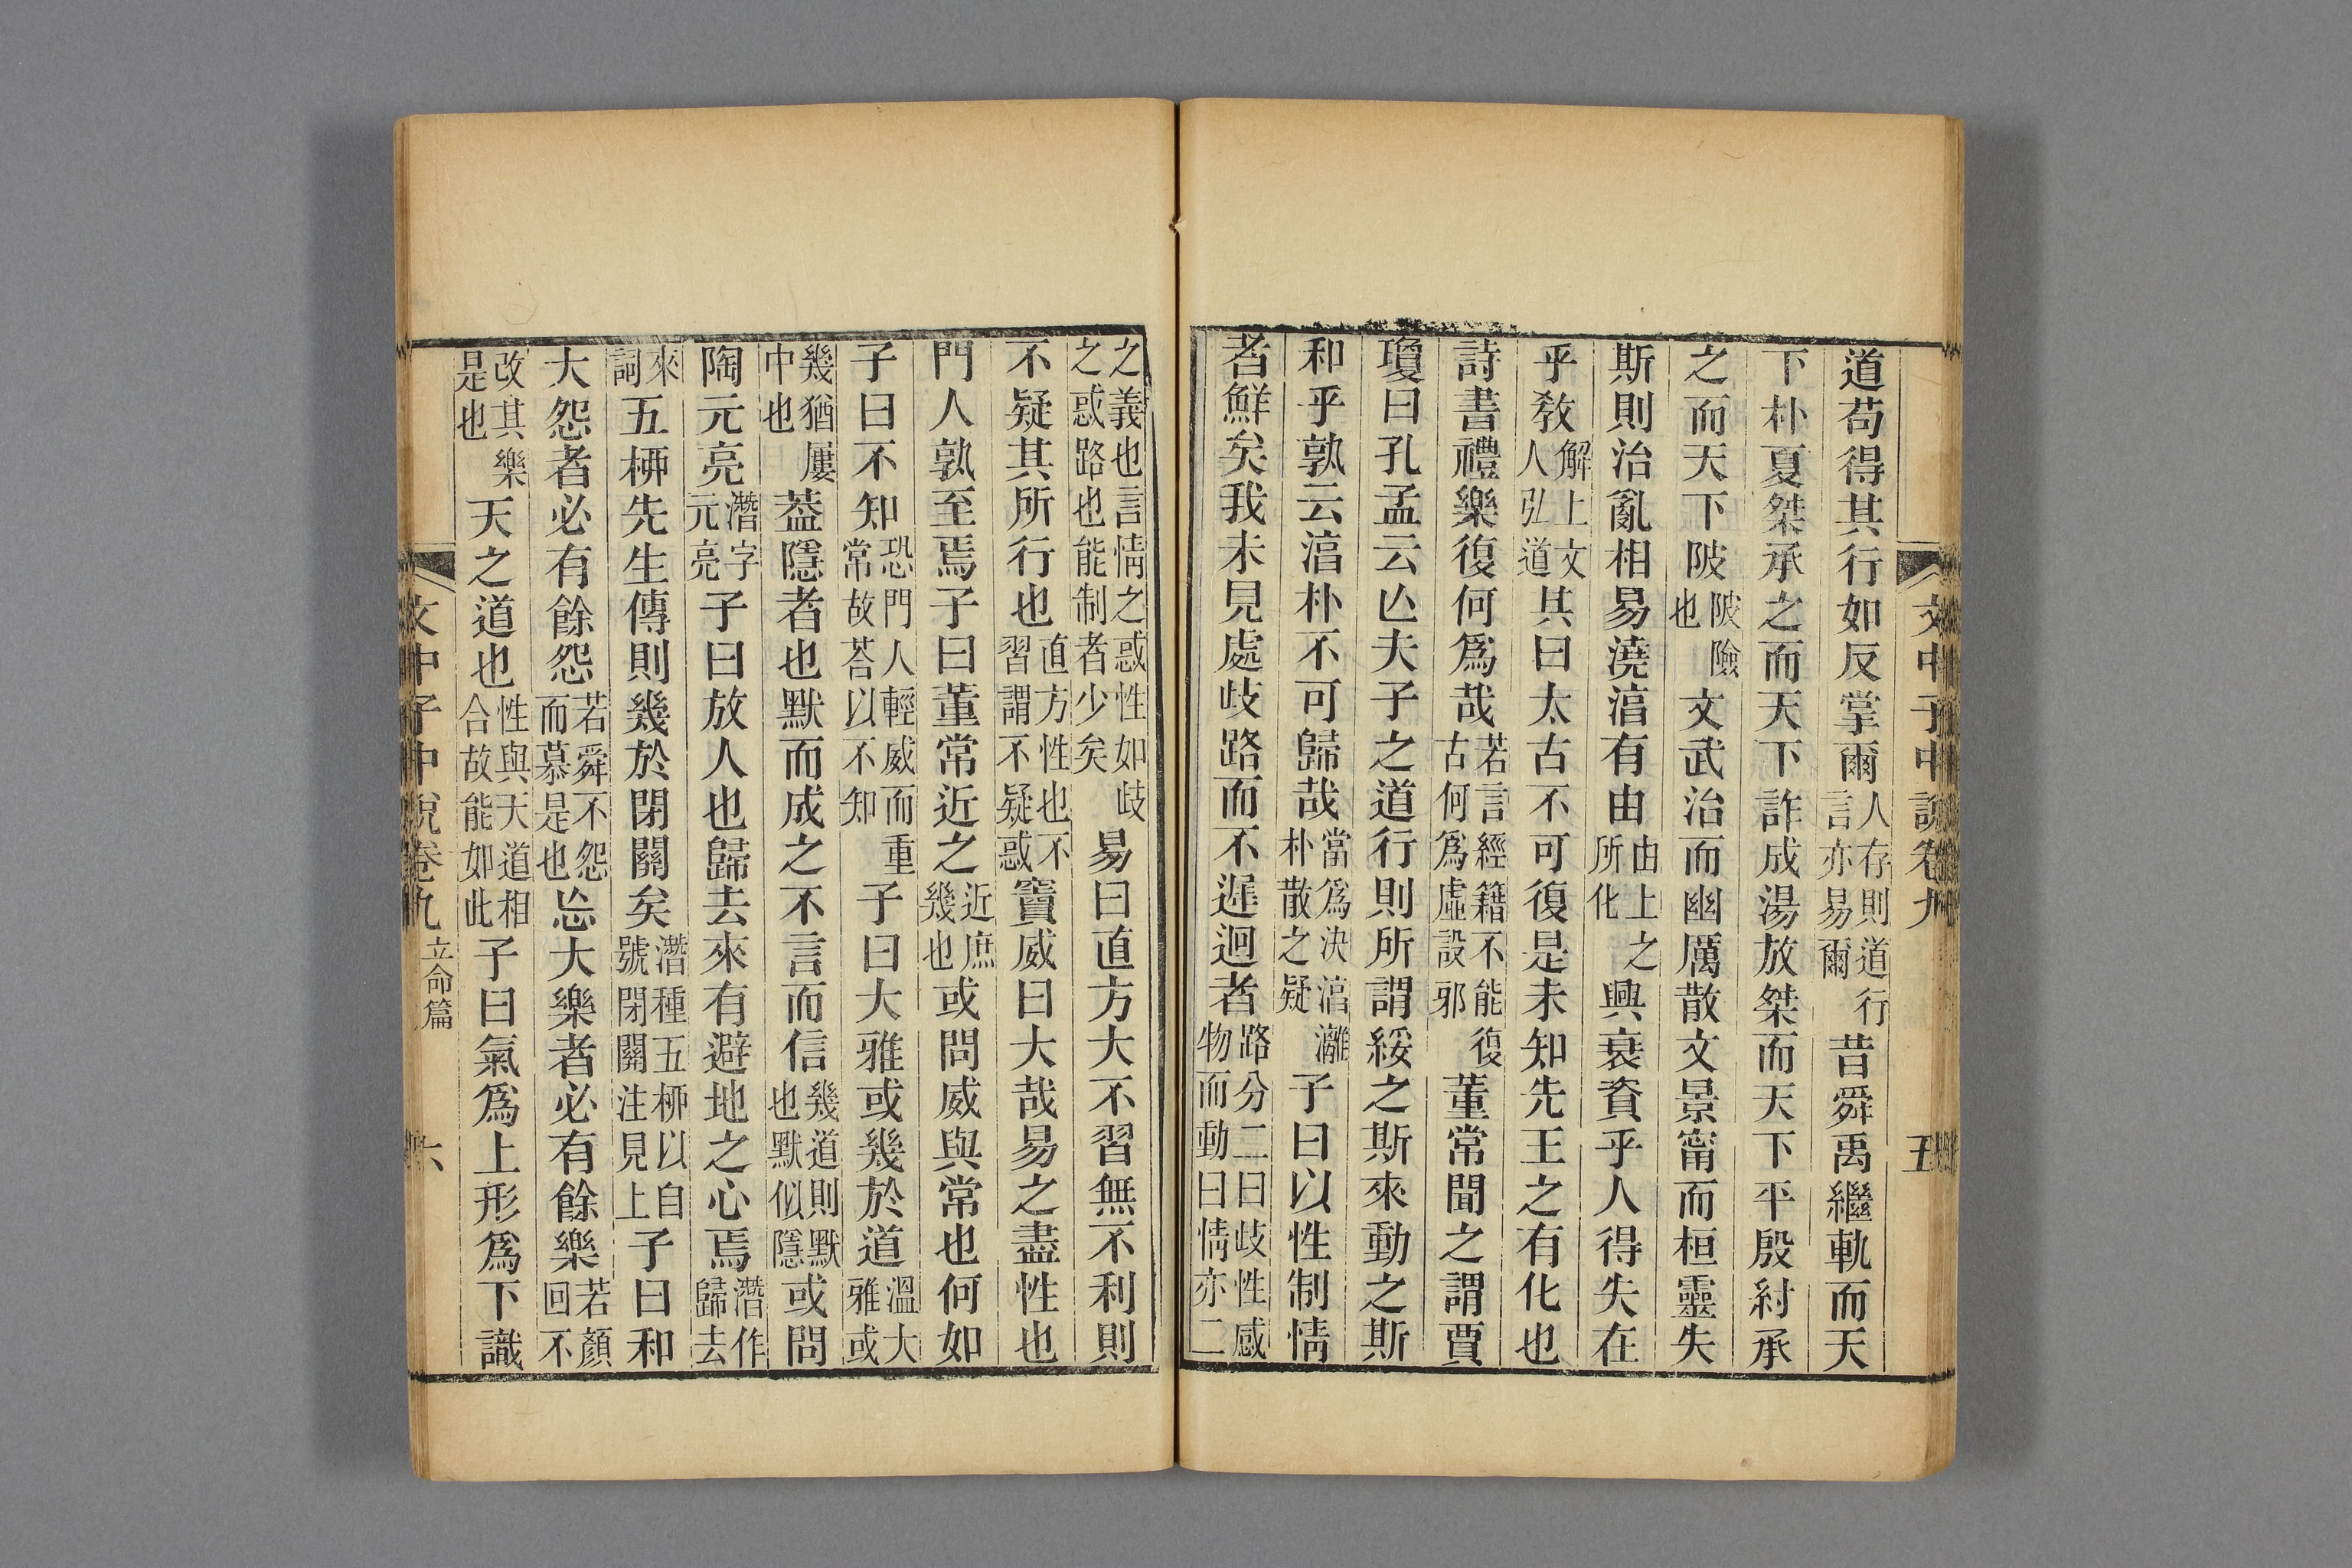 文中子中說卷九 五
道苟得其行如反掌爾人存則道行言亦易爾昔舜禹繼軌而天
下朴夏桀承之而天下詐成湯放桀而天下平殷紂承
之而天下陂陂險也文武治而幽厲散文景甯而桓靈失
斯則治亂相易澆湻有由由上之所化興衰資乎人得失在
乎敎解上文人弘道其曰太古不可復是未知先王之有化也
詩書禮樂復何爲哉若言經籍不能復古何爲虛設邪董常聞之謂賈
瓊曰孔孟云亾夫子之道行則所謂綏之斯來動之斯
和乎孰云湻朴不可歸哉當爲決湻漓朴散之疑子曰以性制情
者鮮矣我未見處歧路而不遲迴者路分二曰歧性感物而動曰情亦二
之義也言情之惑性如歧之惑路也能制者少矣易曰直方大不習無不利則
不疑其所行也直方性也不習謂不疑惑竇威曰大哉易之盡性也
門人孰至焉子曰董常近之近庶幾也或問威與常也何如
子曰不知恐門人輕威而重常故荅以不知子曰大雅或幾於道溫大雅或
幾猶屢中也葢隱者也默而成之不言而信幾道則默也默似隱或問
陶元亮潛字元亮子曰放人也歸去來有避地之心焉潛作歸去
來詞五栁先生傳則幾於閉關矣潛種五栁以自號閉關注見上子曰和
大怨者必有餘怨若舜不怨而慕是也忘大樂者必有餘樂若顏回不
改其樂是也天之道也性與天道相合故能如此子曰氣爲上形爲下識
文中子中說卷九 立命篇 六